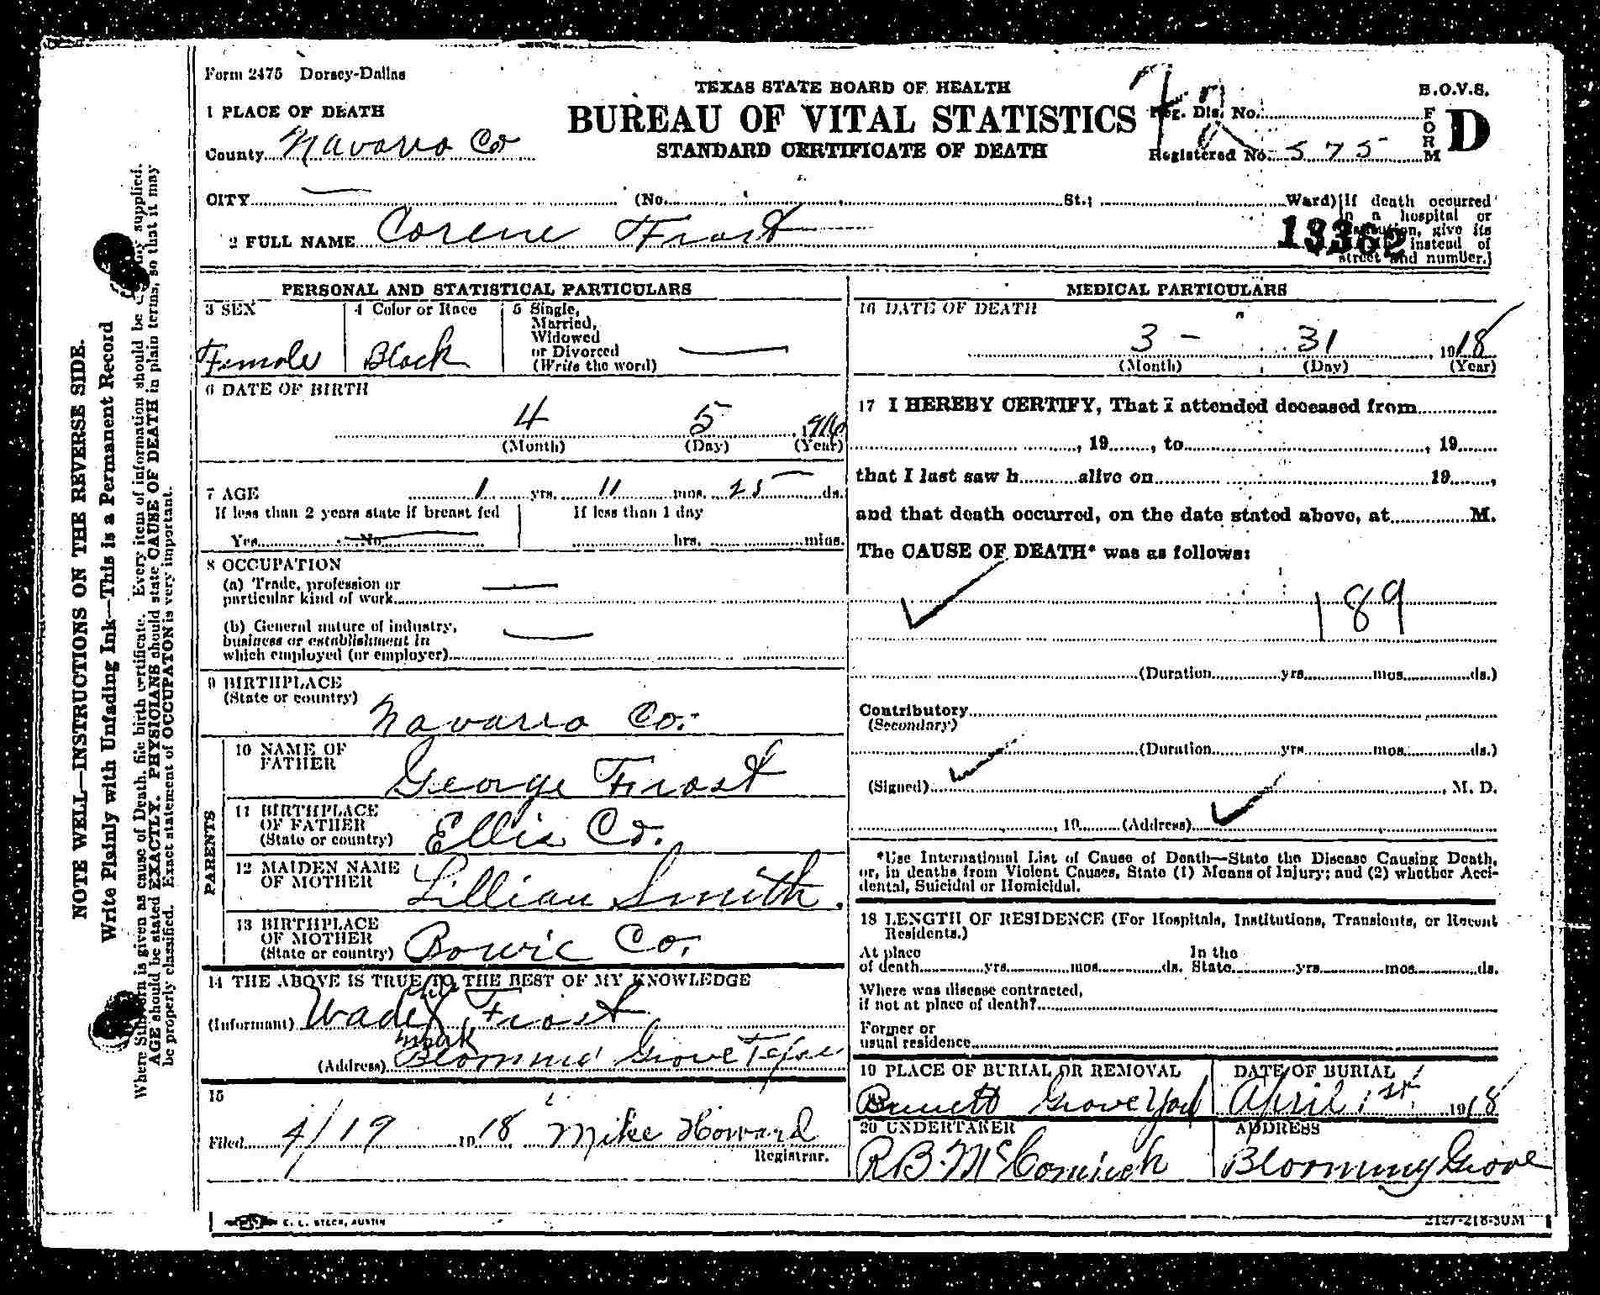 Form 2475 Dorsey-Dallas
TEXAS STATE BOARD OF HEALTH
B.O.V.S.
1 PLACE OF DEATH
BUREAU OF VITAL STATISTICS
Reg. Dis. No.
FORM D
County Navarro Co
STANDARD CERTIFICATE OF DEATH
Registered No. 575
CITY (No. St.; Ward)
[If death occurred in a hospital or institution, give its instead of street and number.]
13362
2 FULL NAME Corene Frost
PERSONAL AND STATISTICAL PARTICULARS
3 SEX
Female
4 Color or Race
Black
5 Single,
Married,
Widowed
or Divorced
(Write the word)
6 DATE OF BIRTH
4 5 1916
(Month) (Day) (Year)
7 AGE 1 yrs. 11 mos. 25 ds.
If less than 2 years state if breast fed
Yes No
If less than 1 day
hrs. mins.
8 OCCUPATION
(a) Trade, profession or
particular kind of work
(b) General nature of industry,
business or establishment in
which employed (or employer)
9 BIRTHPLACE
(State or country)
Navarro Co.
PARENTS
10 NAME OF
FATHER
George Frost
11 BIRTHPLACE
OF FATHER
(State or country)
Ellis Co.
12 MAIDEN NAME
OF MOTHER
Lillian Smith.
13 BIRTHPLACE
OF MOTHER
(State or country)
Bowie Co.
14 THE ABOVE IS TRUE TO THE BEST OF MY KNOWLEDGE
his
(Informant) Wade X Frost
mark
(Address) Blooming Grove Texas
15
Filed 4/19 1918 Mike Howard
Registrar.
MEDICAL PARTICULARS
16 DATE OF DEATH
3 - 31 1918
(Month) (Day) (Year)
17 I HEREBY CERTIFY, That I attended deceased from
, 19 , to , 19
that I last saw h alive on 19 ,
and that death occurred, on the date stated above, at M.
The CAUSE OF DEATH* was as follows:
189
(Duration yrs. mos. ds.)
Contributory
(Secondary)
(Duration yrs mos. ds.)
(Signed) , M. D.
, 19 (Address)
*Use International List of Cause of Death—State the Disease Causing Death,
or, in deaths from Violent Causes, State (1) Means of Injury; and (2) whether Acci-
dental, Suicidal or Homicidal.
18 LENGTH OF RESIDENCE (For Hospitals, Institutions, Transients, or Recent
Residents.)
At place
of death yrs. mos. ds.
In the
State yrs. mos. ds.
Where was disease contracted,
if not at place of death?
Former or
usual residence
19 PLACE OF BURIAL OR REMOVAL
Grove Yard
DATE OF BURIAL
April 1st. 1918
20 UNDERTAKER
R B.
ADDRESS
Blooming Grove
E. L. STECK, AUSTIN
2127-218-30M
NOTE WELL—INSTRUCTIONS ON THE REVERSE SIDE.
Write Plainly with Unfading Ink—This is a Permanent Record
Every item of information should be supplied.
Where is given as cause of Death, file birth certificate.
AGE should be stated EXACTLY. PHYSICIANS should state CAUSE OF DEATH in plain terms, so that it may
be properly classified. Exact statement of OCCUPATON is very important.